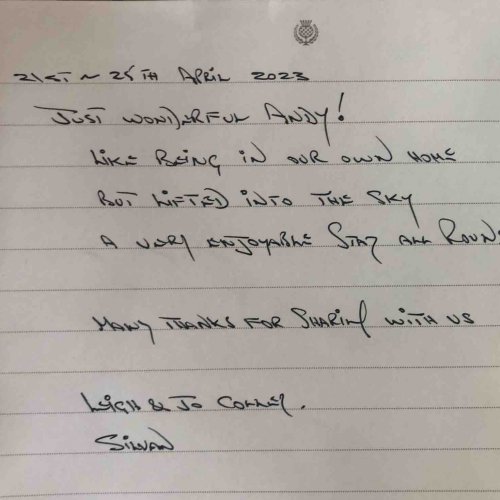 21ST ~ 25TH APRIL 2023
JUST WONDERFUL ANDY!
LIKE BEING IN OUR OWN HOME
BUT LIFTED INTO THE SKY
A VERY ENJOYABLE STAY ALL ROUND
MANY THANKS FOR SHARING WITH US
LEIGH & JO COLLEY.
SILVAN